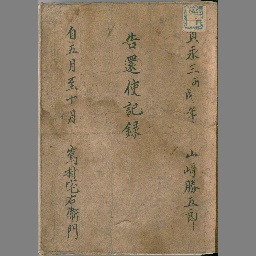 貞永三丙戌年
山崎勝五郎
告還使記録
自五月至十月
寫村宅右衛門